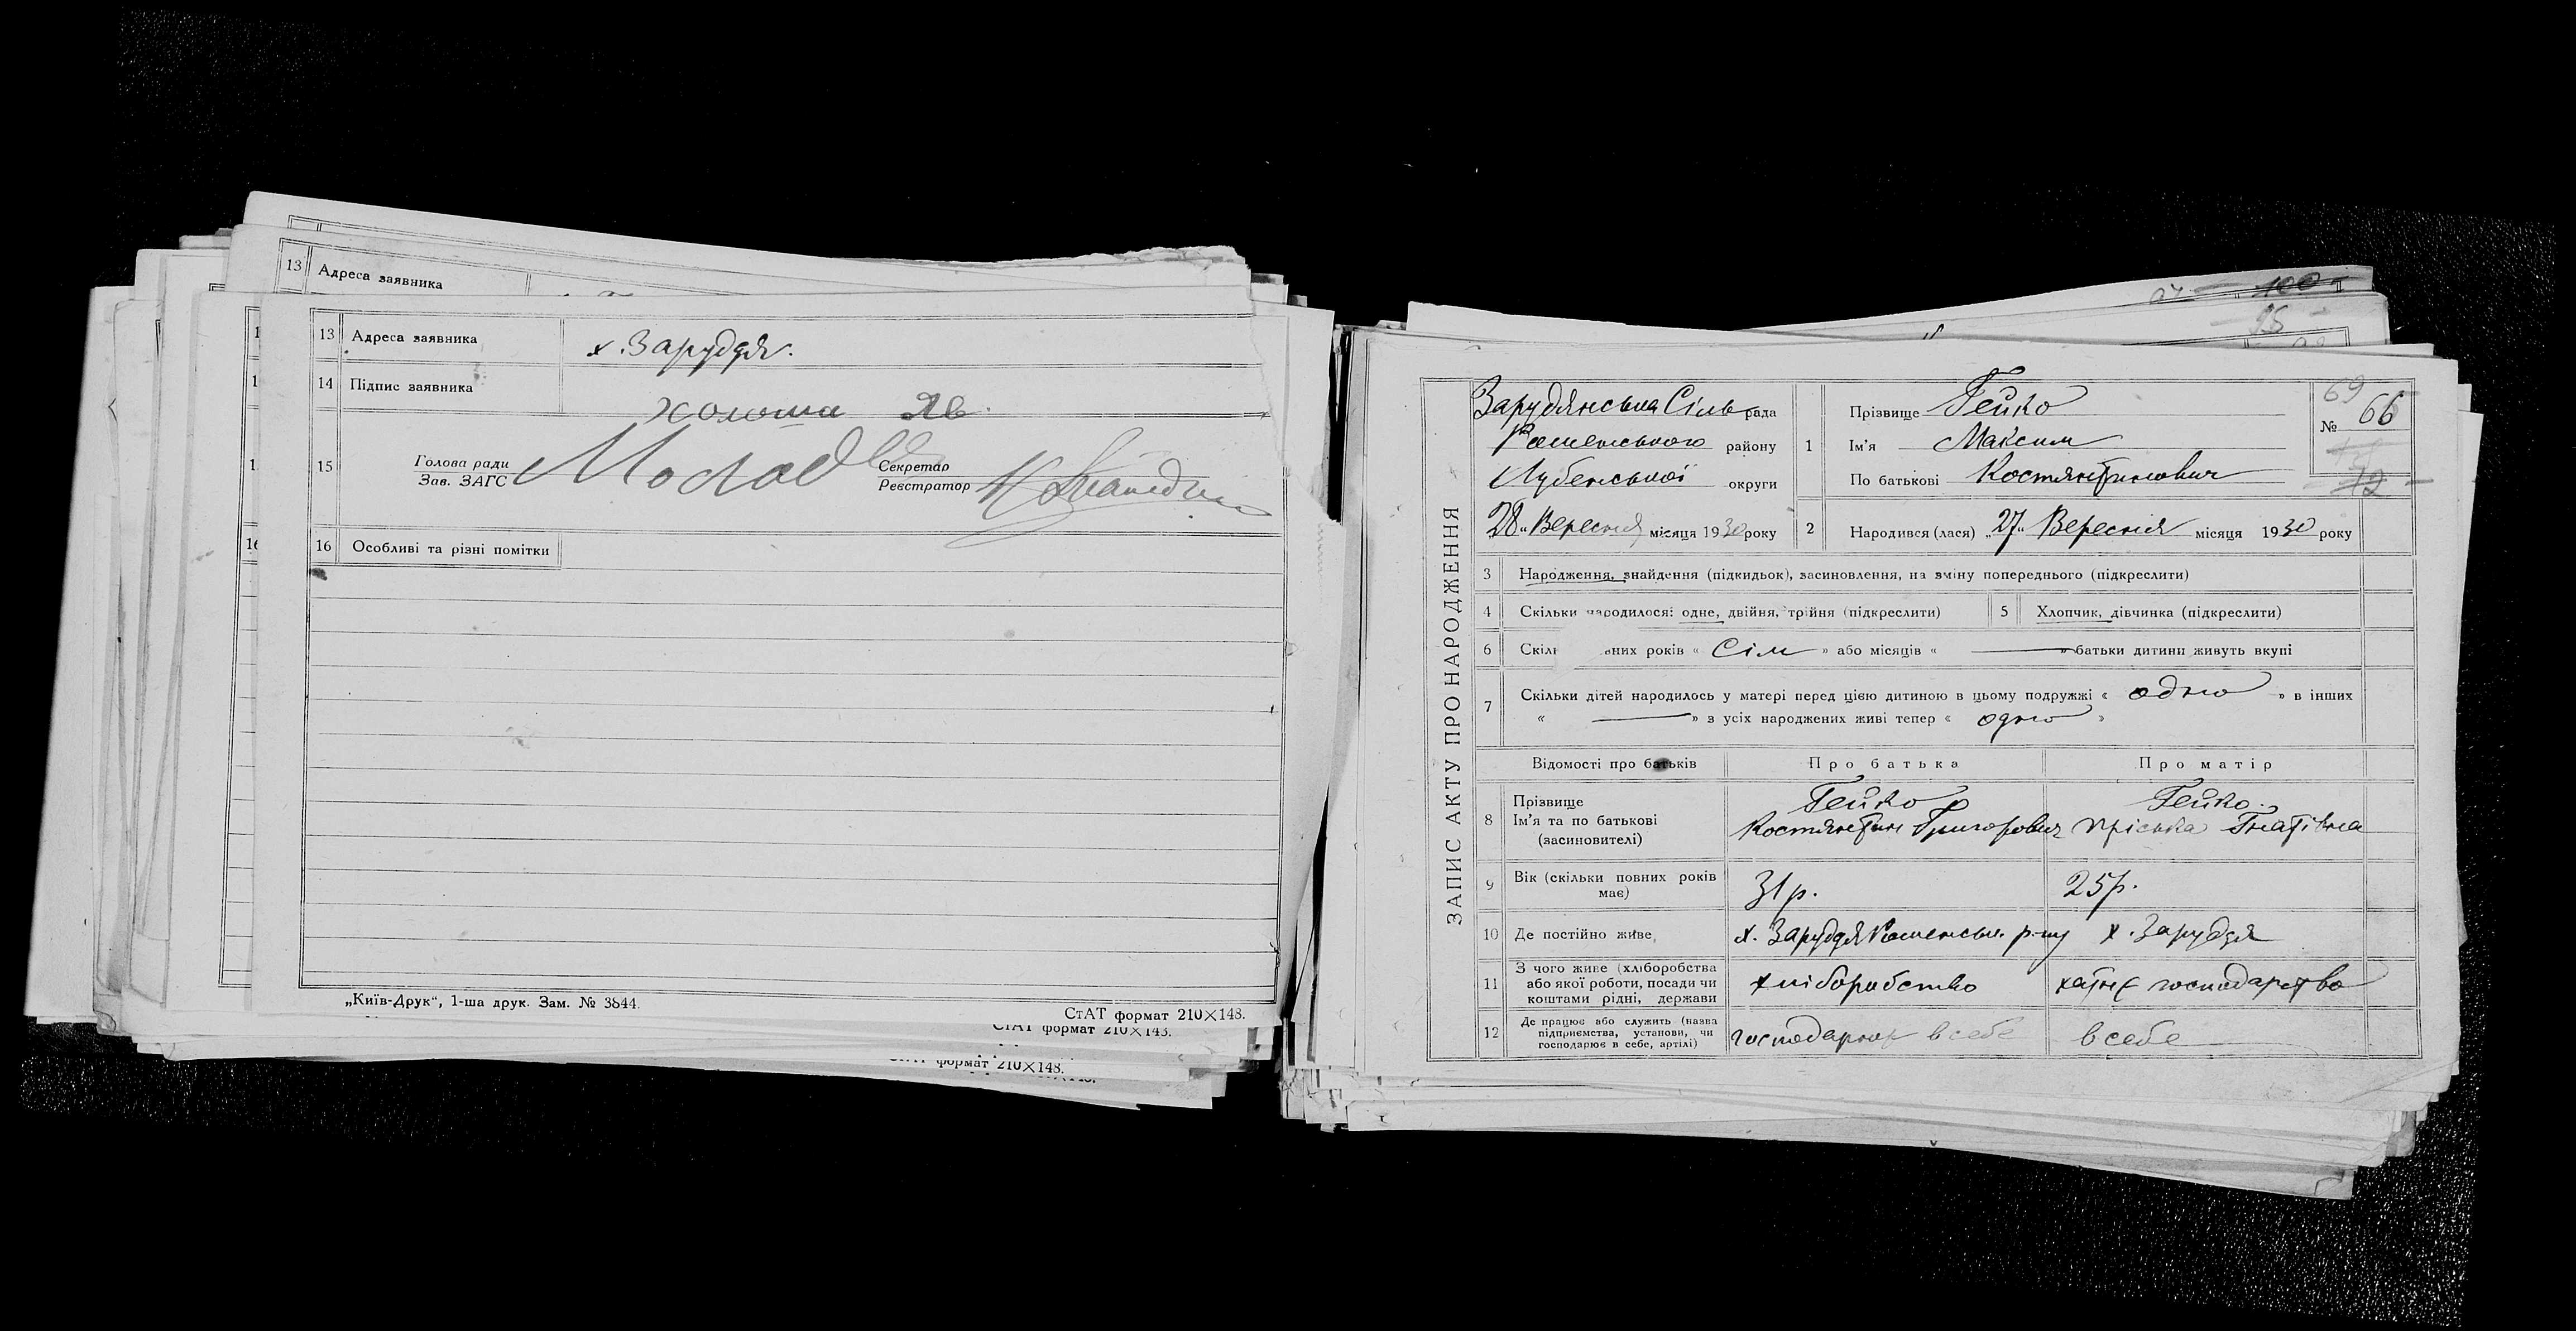 13 Адреса заявника
13 Адреса заявника х. Заруддя.
14 Підпис заявника
Холоша Яв.
15 Голова ради Зав. ЗАГС Секретар Реєстратор
16 Особливі та різні помітки
„Київ-Друк“, 1-ша друк. Зам. № 3844.
СтАТ формат 210×148.
СтАТ формат 210×148.
формат 210×148.
100
95
ЗАПИС АКТУ ПРО НАРОДЖЕННЯ
Заруддянська Сільрада
Роменського району
Лубенської округи
„28“ Вересня місяця 1930 року
1 Прізвище Гейко
Ім'я Максим
По батькові Костянтинович
69
№ 66
72
2 Народився (лася) „27“ Вересня місяця 1930 року
3 Народження, знайдення (підкидьок), засиновлення, на зміну попереднього (підкреслити)
4 Скільки народилося: одне, двійня, трійня (підкреслити) 5 Хлопчик, дівчинка (підкреслити)
6 Скіль вних років « Сім » або місяців « — » батьки дитини живуть вкупі
7 Скільки дітей народилось у матері перед цією дитиною в цьому подружжі « одно » в інших
« — » з усіх народжених живі тепер « одно »
Відомості про батьків Про батька Про матір
8 Прізвище Гейко Гейко.
Ім'я та по батькові Костянтин Григорович Пріська Гнатівна
(засиновителі)
9 Вік (скільки повних років має) 31 р. 25 р.
10 Де постійно живе х. Заруддя Роменськ. р-ну х. Заруддя
11 З чого живе (хліборобства або якої роботи, посади чи коштами рідні, держави хліборобство хатнє господарство
12 Де працює або служить (назва підприємства, установи, чи господарює в себе, артілі) господарює в себе в себе